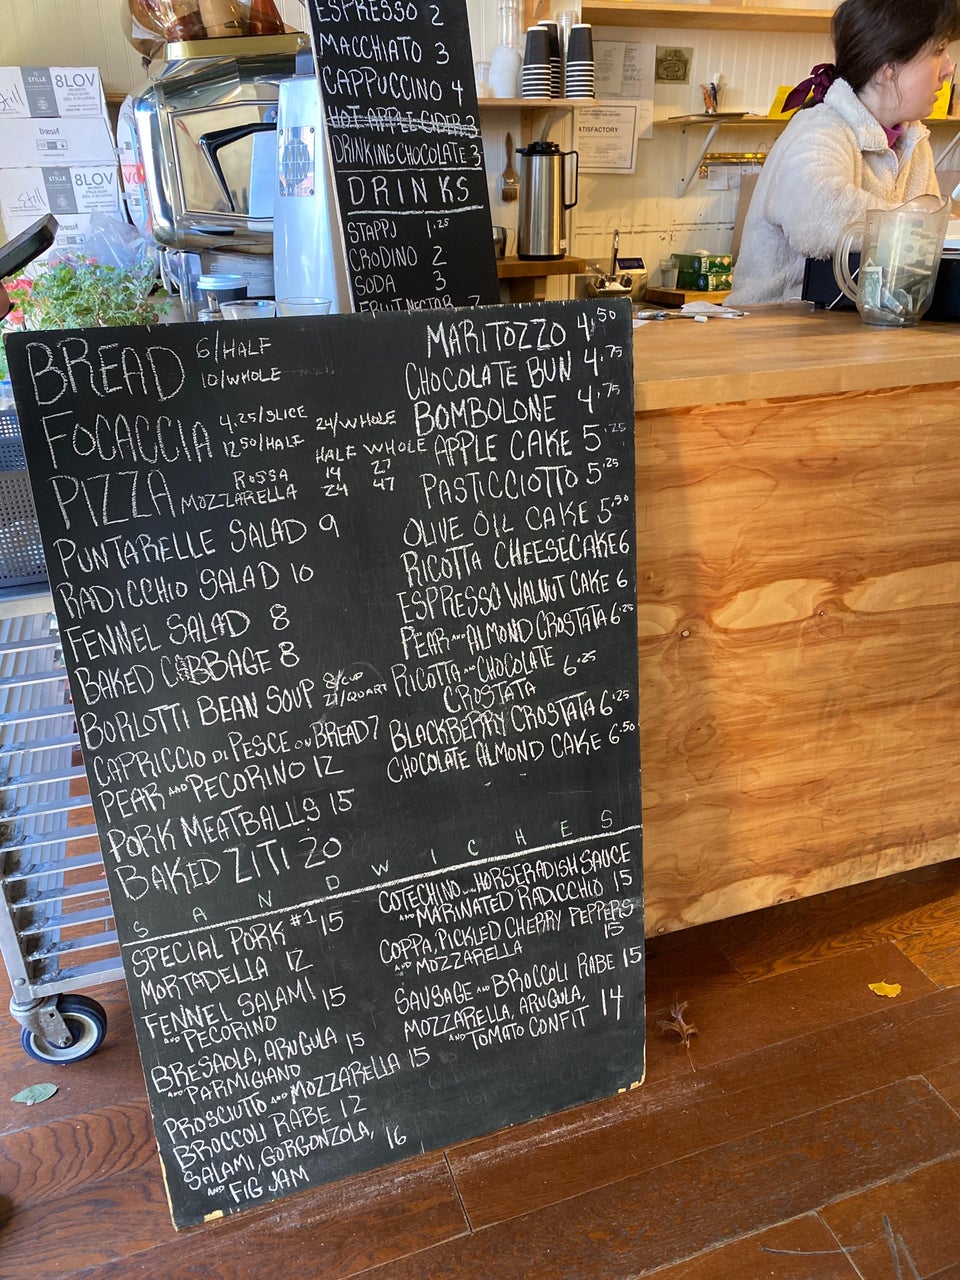 ESPRESSO 2
MACCHIATO 3
CAPPUCCINO 4
HOT APPLE CIDER 3
DRINKING CHOCOLATE 3
DRINKS
STAPPJ 1.25
CRODINO 2
SODA 3
FRUIT NECTAR
STILLE
8LOV
Still
8LOV
ATISFACTORY
BREAD 6/HALF
10/WHOLE
FOCACCIA 4.25/SLICE 24/WHOLE
12.50/HALF
HALF WHOLE
PIZZA ROSSA 14 27
MOZZARELLA 24 47
PUNTARELLE SALAD 9
RADICCHIO SALAD 10
FENNEL SALAD 8
BAKED CABBAGE 8
BORLOTTI BEAN SOUP 8/CUP
/QUART
CAPRICCIO DI PESCE ON BREAD 7
PEAR AND PECORINO 12
PORK MEATBALLS 15
BAKED ZITI 20
MARITOZZO 4.50
CHOCOLATE BUN 4.75
BOMBOLONE 4.75
APPLE CAKE 5.25
PASTICCIOTTO 5.25
OLIVE OIL CAKE 5.50
RICOTTA CHEESECAKE 6
ESPRESSO WALNUT CAKE 6
PEAR AND ALMOND CROSTATA 6.25
RICOTTA AND CHOCOLATE 6.25
CROSTATA
BLACKBERRY CROSTATA 6.25
CHOCOLATE ALMOND CAKE 6.50
SANDWICHES
SPECIAL PORK #1 15
MORTADELLA 12
FENNEL SALAMI 15
AND PECORINO
BRESAOLA, ARUGULA 15
AND PARMIGIANO
PROSCIUTTO AND MOZZARELLA 15
BROCCOLI RABE 12
SALAMI, GORGONZOLA, 16
AND FIG JAM
COTECHINO WITH HORSERADISH SAUCE
AND MARINATED RADICCHIO 15
COPPA, PICKLED CHERRY PEPPERS
AND MOZZARELLA 15
SAUSAGE AND BROCCOLI RABE 15
MOZZARELLA, ARUGULA, 14
AND TOMATO CONFIT